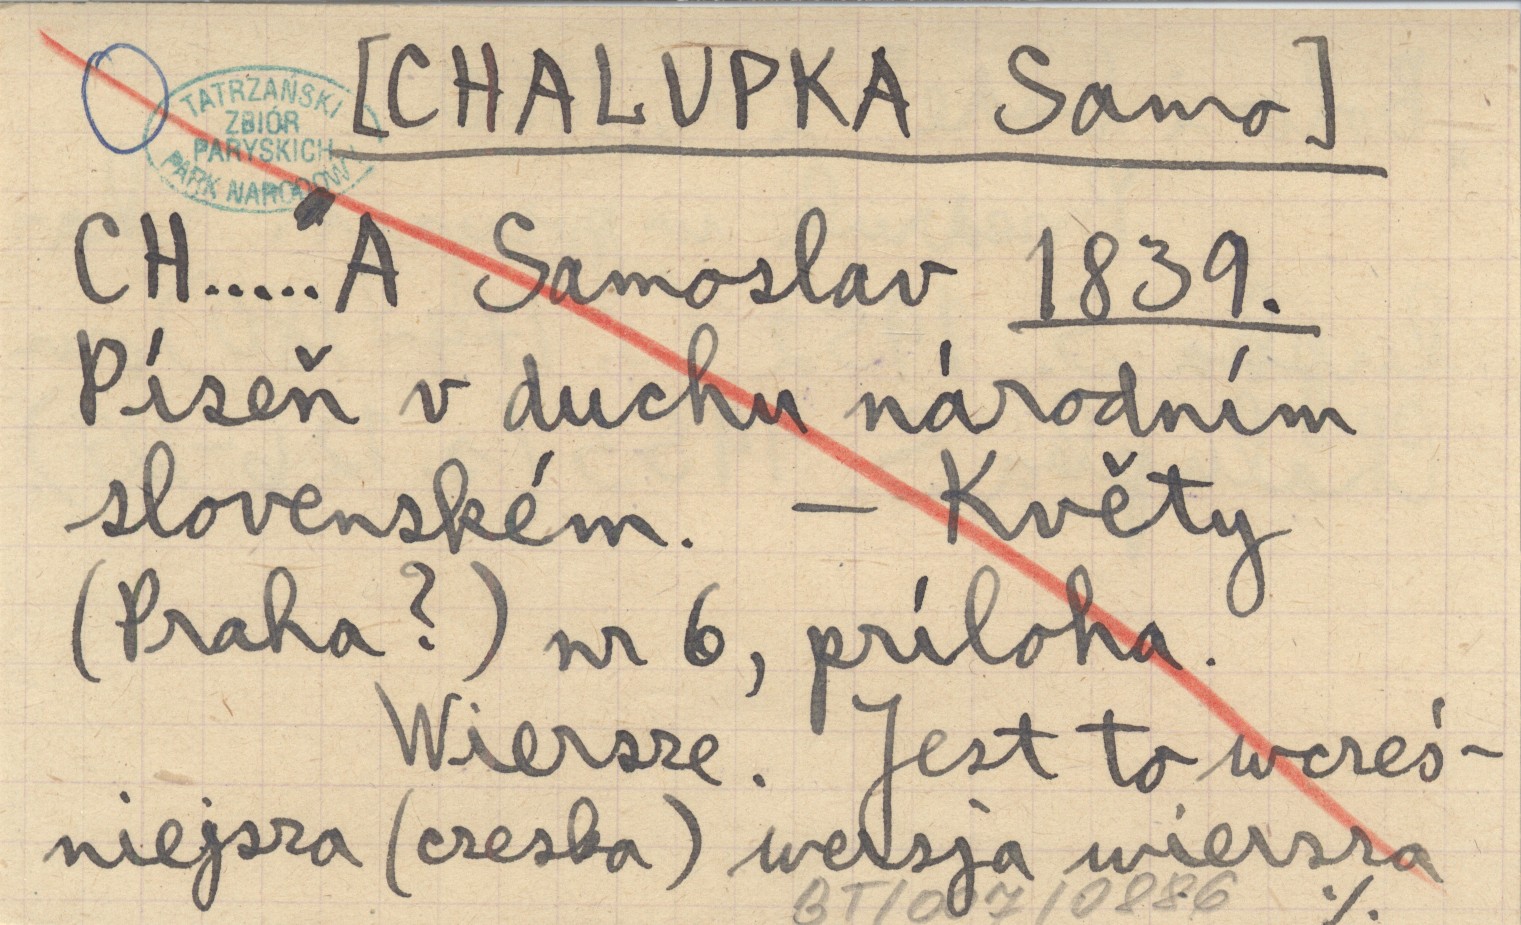 [CHALUPKA Samo]
TATRZAŃSKI
ZBIÓR
PARYSKICH
PARK NARODOW
CH.....A Samoslav 1839.
Píseň v duchu národním
slovenském. — Květy
(Praha?) nr 6, príloha.
Wiersze. Jest to wcześ-
niejsza (czeska) wersja wiersza
BT/007/0886 ./.